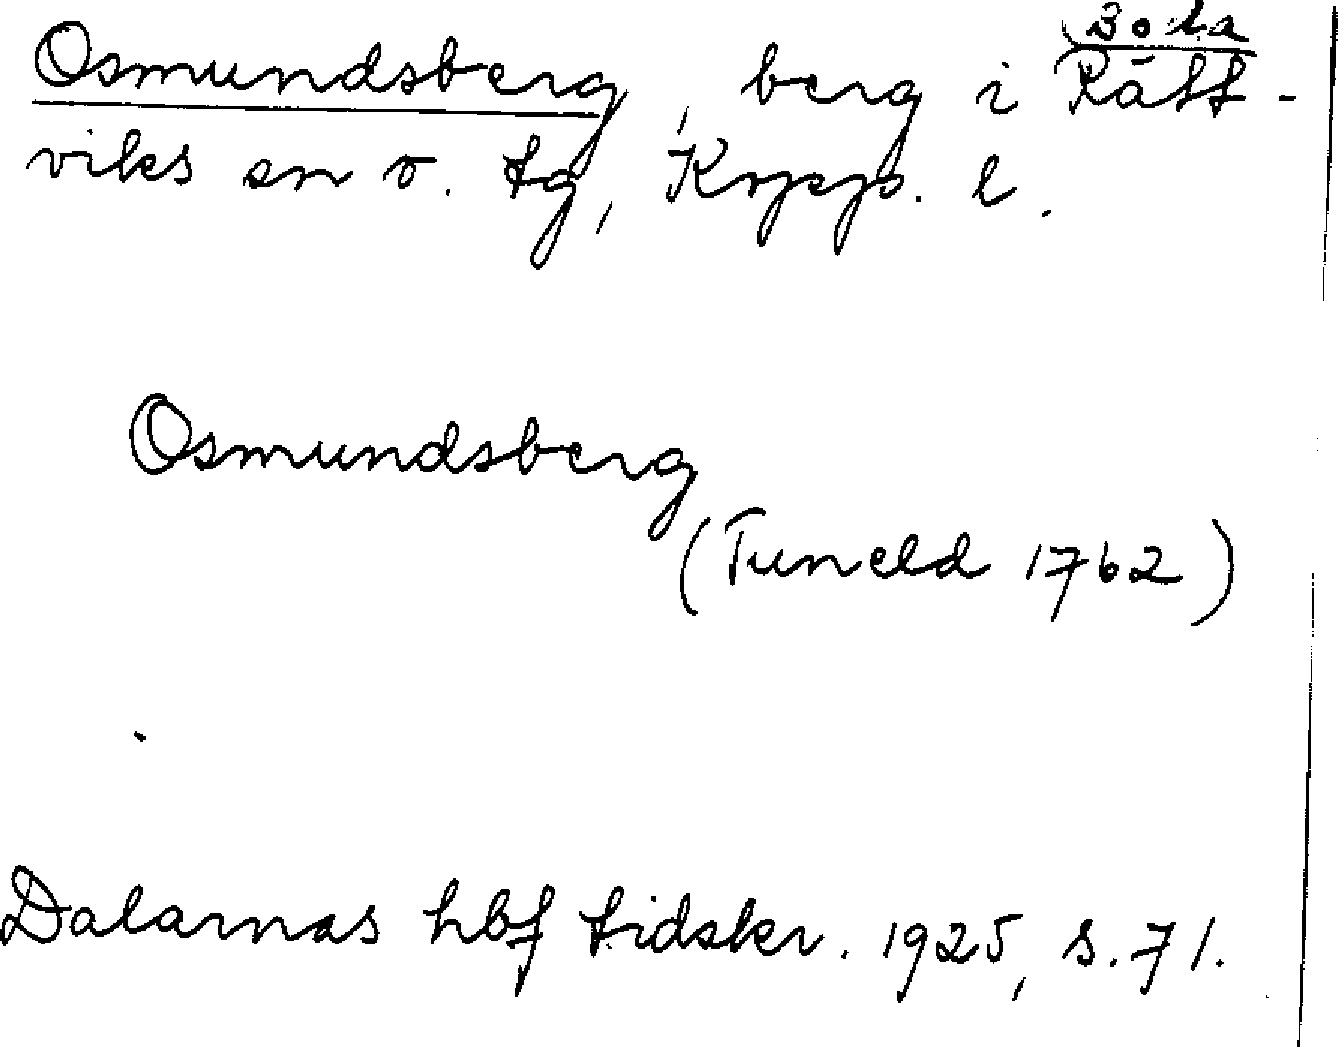 Boda
Osmundsberg, berg i Rätt-
viks sn o. tg, Kopp. l.
Osmundsberg
(Tuneld 1762)
Dalarnas hbf tidskr. 1925, s. 71.